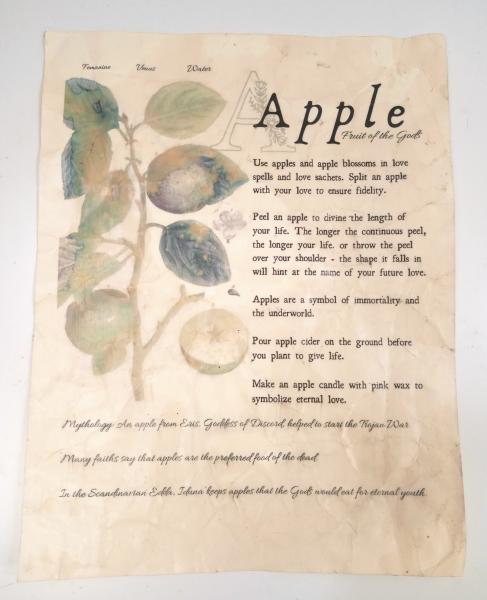 Feminine Venus Water
A
Apple
Fruit of the Gods
Use apples and apple blossoms in love
spells and love sachets. Split an apple
with your love to ensure fidelity.
Peel an apple to divine the length of
your life. The longer the continuous peel,
the longer your life. or throw the peel
over your shoulder - the shape it falls in
will hint at the name of your future love.
Apples are a symbol of immortality and
the underworld.
Pour apple cider on the ground before
you plant to give life.
Make an apple candle with pink wax to
symbolize eternal love.
Mythology: An apple from Eris, Goddess of Discord, helped to start the Trojan War
Many faiths say that apples are the preferred food of the dead.
In the Scandinavian Edda, Iduna keeps apples that the Gods would eat for eternal youth.